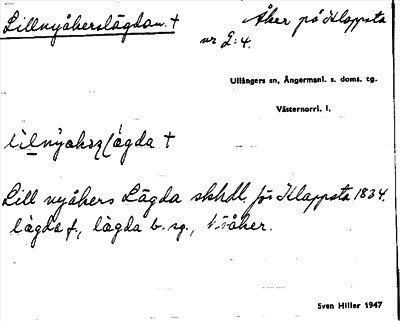 Lillnyåherslägdan. †
Åker på Klappsta
nr 2:4.
Ullångers sn, Ångermanl. s. doms. tg.
Västernorrl. l.
Lill nyåkers Lägda skhdl. för Klappsta 1834.
lägda f., lägda b. sg., nåker.
Sven Hiller 1947